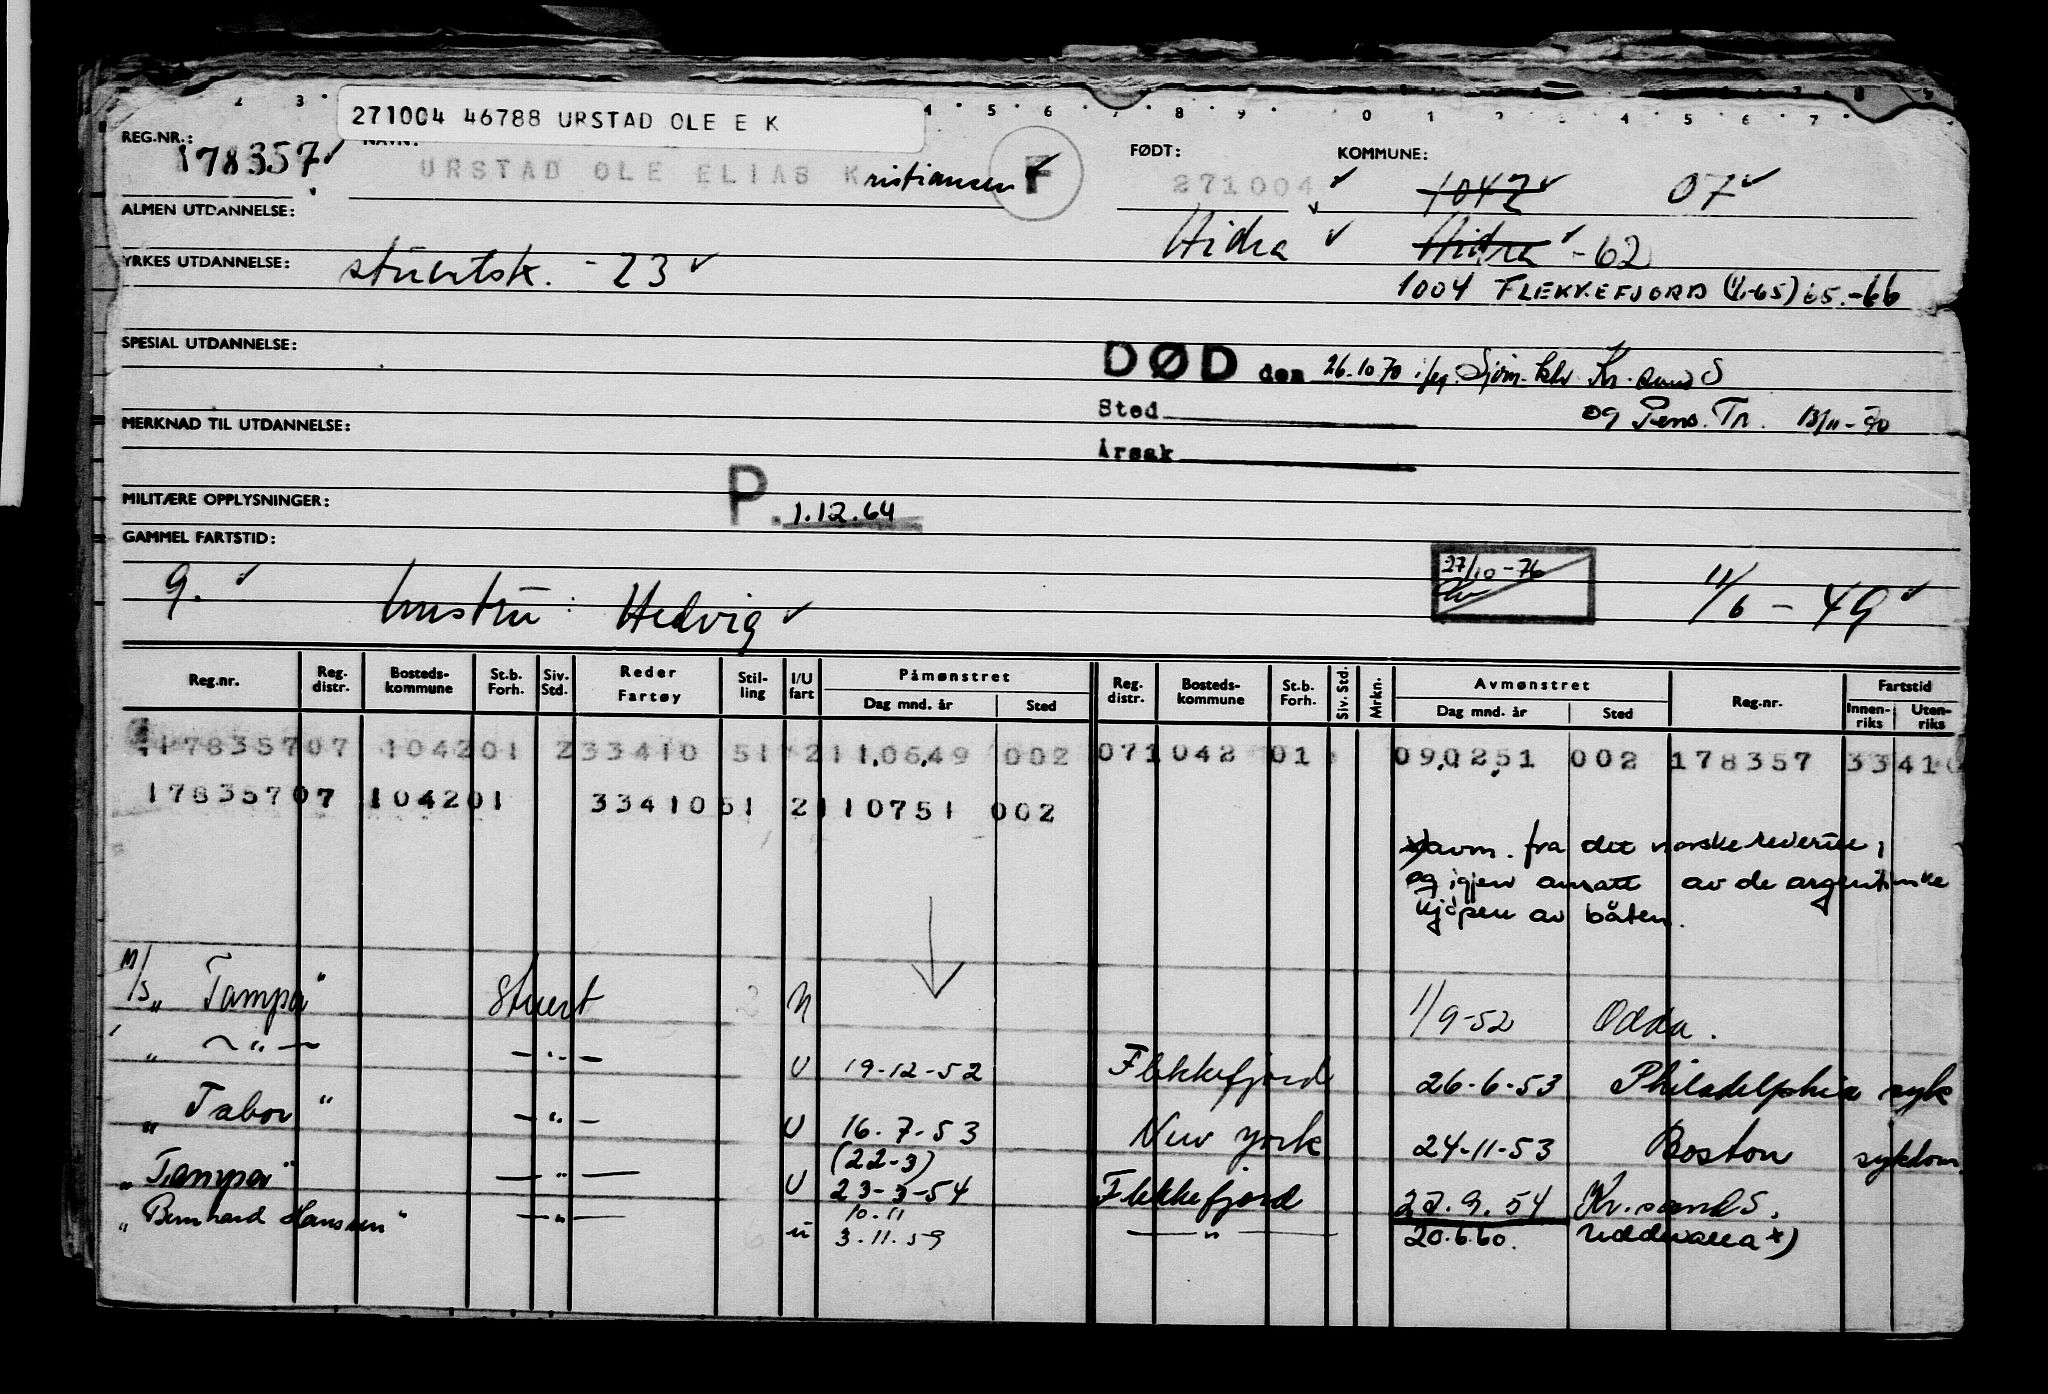 2 3 4 5 6 7 8 9 0 1 2 3 4 5 6 7 8 9
271004 46788 URSTAD OLE E K
REG.NR.: NAVN: FØDT: KOMMUNE:
178357 URSTAD OLE ELIAS Kristiansen F 271004 1042 07
ALMEN UTDANNELSE:
Hidra Hidra -62
YRKES UTDANNELSE: stuertsk. - 23
1004 FLEKKEFJORD (1/1-65) 65.-66
SPESIAL UTDANNELSE:
DØD den 26.10.70 iføg. Sjøm.ktr Kr.sand S
Sted og Pens. Tr. 13/11-70
MERKNAD TIL UTDANNELSE:
Årsak
MILITÆRE OPPLYSNINGER: P. 1.12.64
GAMMEL FARTSTID:
27/10-76
9. hustru: Hedvig 11/6 - 49
Reg.nr. Reg. distr. Bosteds-kommune St.b. Forh. Siv. Std. Reder Fartøy Stil-ling I/U fart Påmønstret Dag mnd. år Sted Reg. distr. Bosteds-kommune St.b. Forh. Siv. Std. Mrkn. Avmønstret Dag mnd. år Sted Reg.nr. Fartstid Innen-riks Uten-riks
178357 07 1042 01 2 33410 51 2 110649 002 07 1042 01 090251 002 178357 33410
178357 07 1042 01 33410 51 2 110751 002
x) avm. fra det norske rederiet,
og igjen ansatt av de argentinske
kjøpere av båten.
M/S "Tampa" Stuert U 1/9-52 Odda.
" -"- -"- U 19-12-52 Flekkefjord 26-6-53 Philadelphia syk
" Tabor" -"- U 16-7-53 New York 24-11-53 Boston sykdom
(22-3)
"Tampa" -"- U 23-3-54 Flekkefjord 27.9.54 Kr.sand S.
10.11
"Bernhard Hanssen" -"- U 3.11.59 -"- 20.6.60. Uddevalla x)